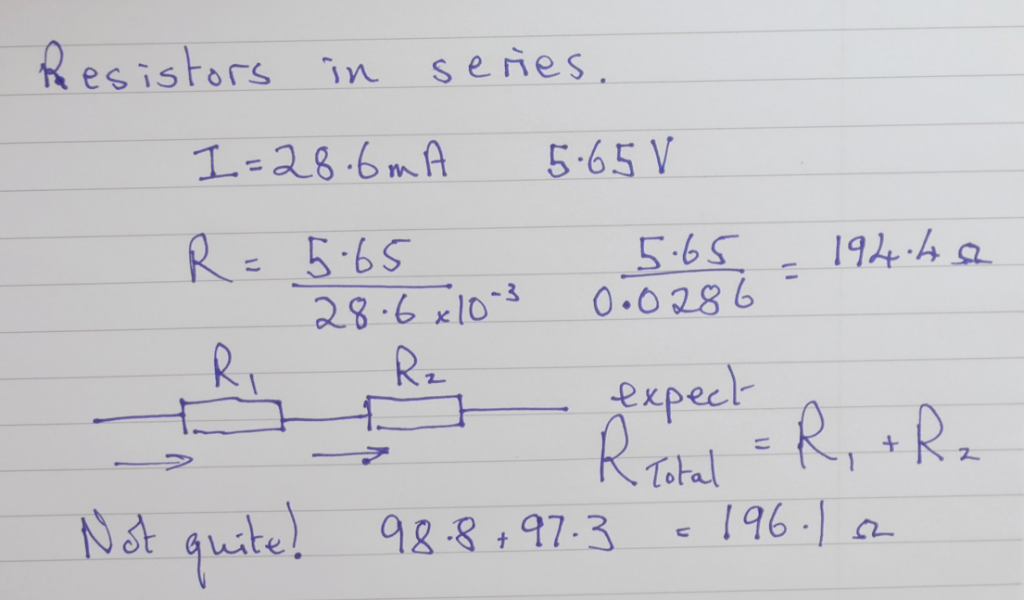 Resistors in series.
I = 28.6mA 5.65 V
R = 5.65 / 28.6 × 10⁻³ 5.65 / 0.0286 = 194.4 Ω
R₁ R₂
expect
R Total = R₁ + R₂
Not quite! 98.8 + 97.3 = 196.1 Ω